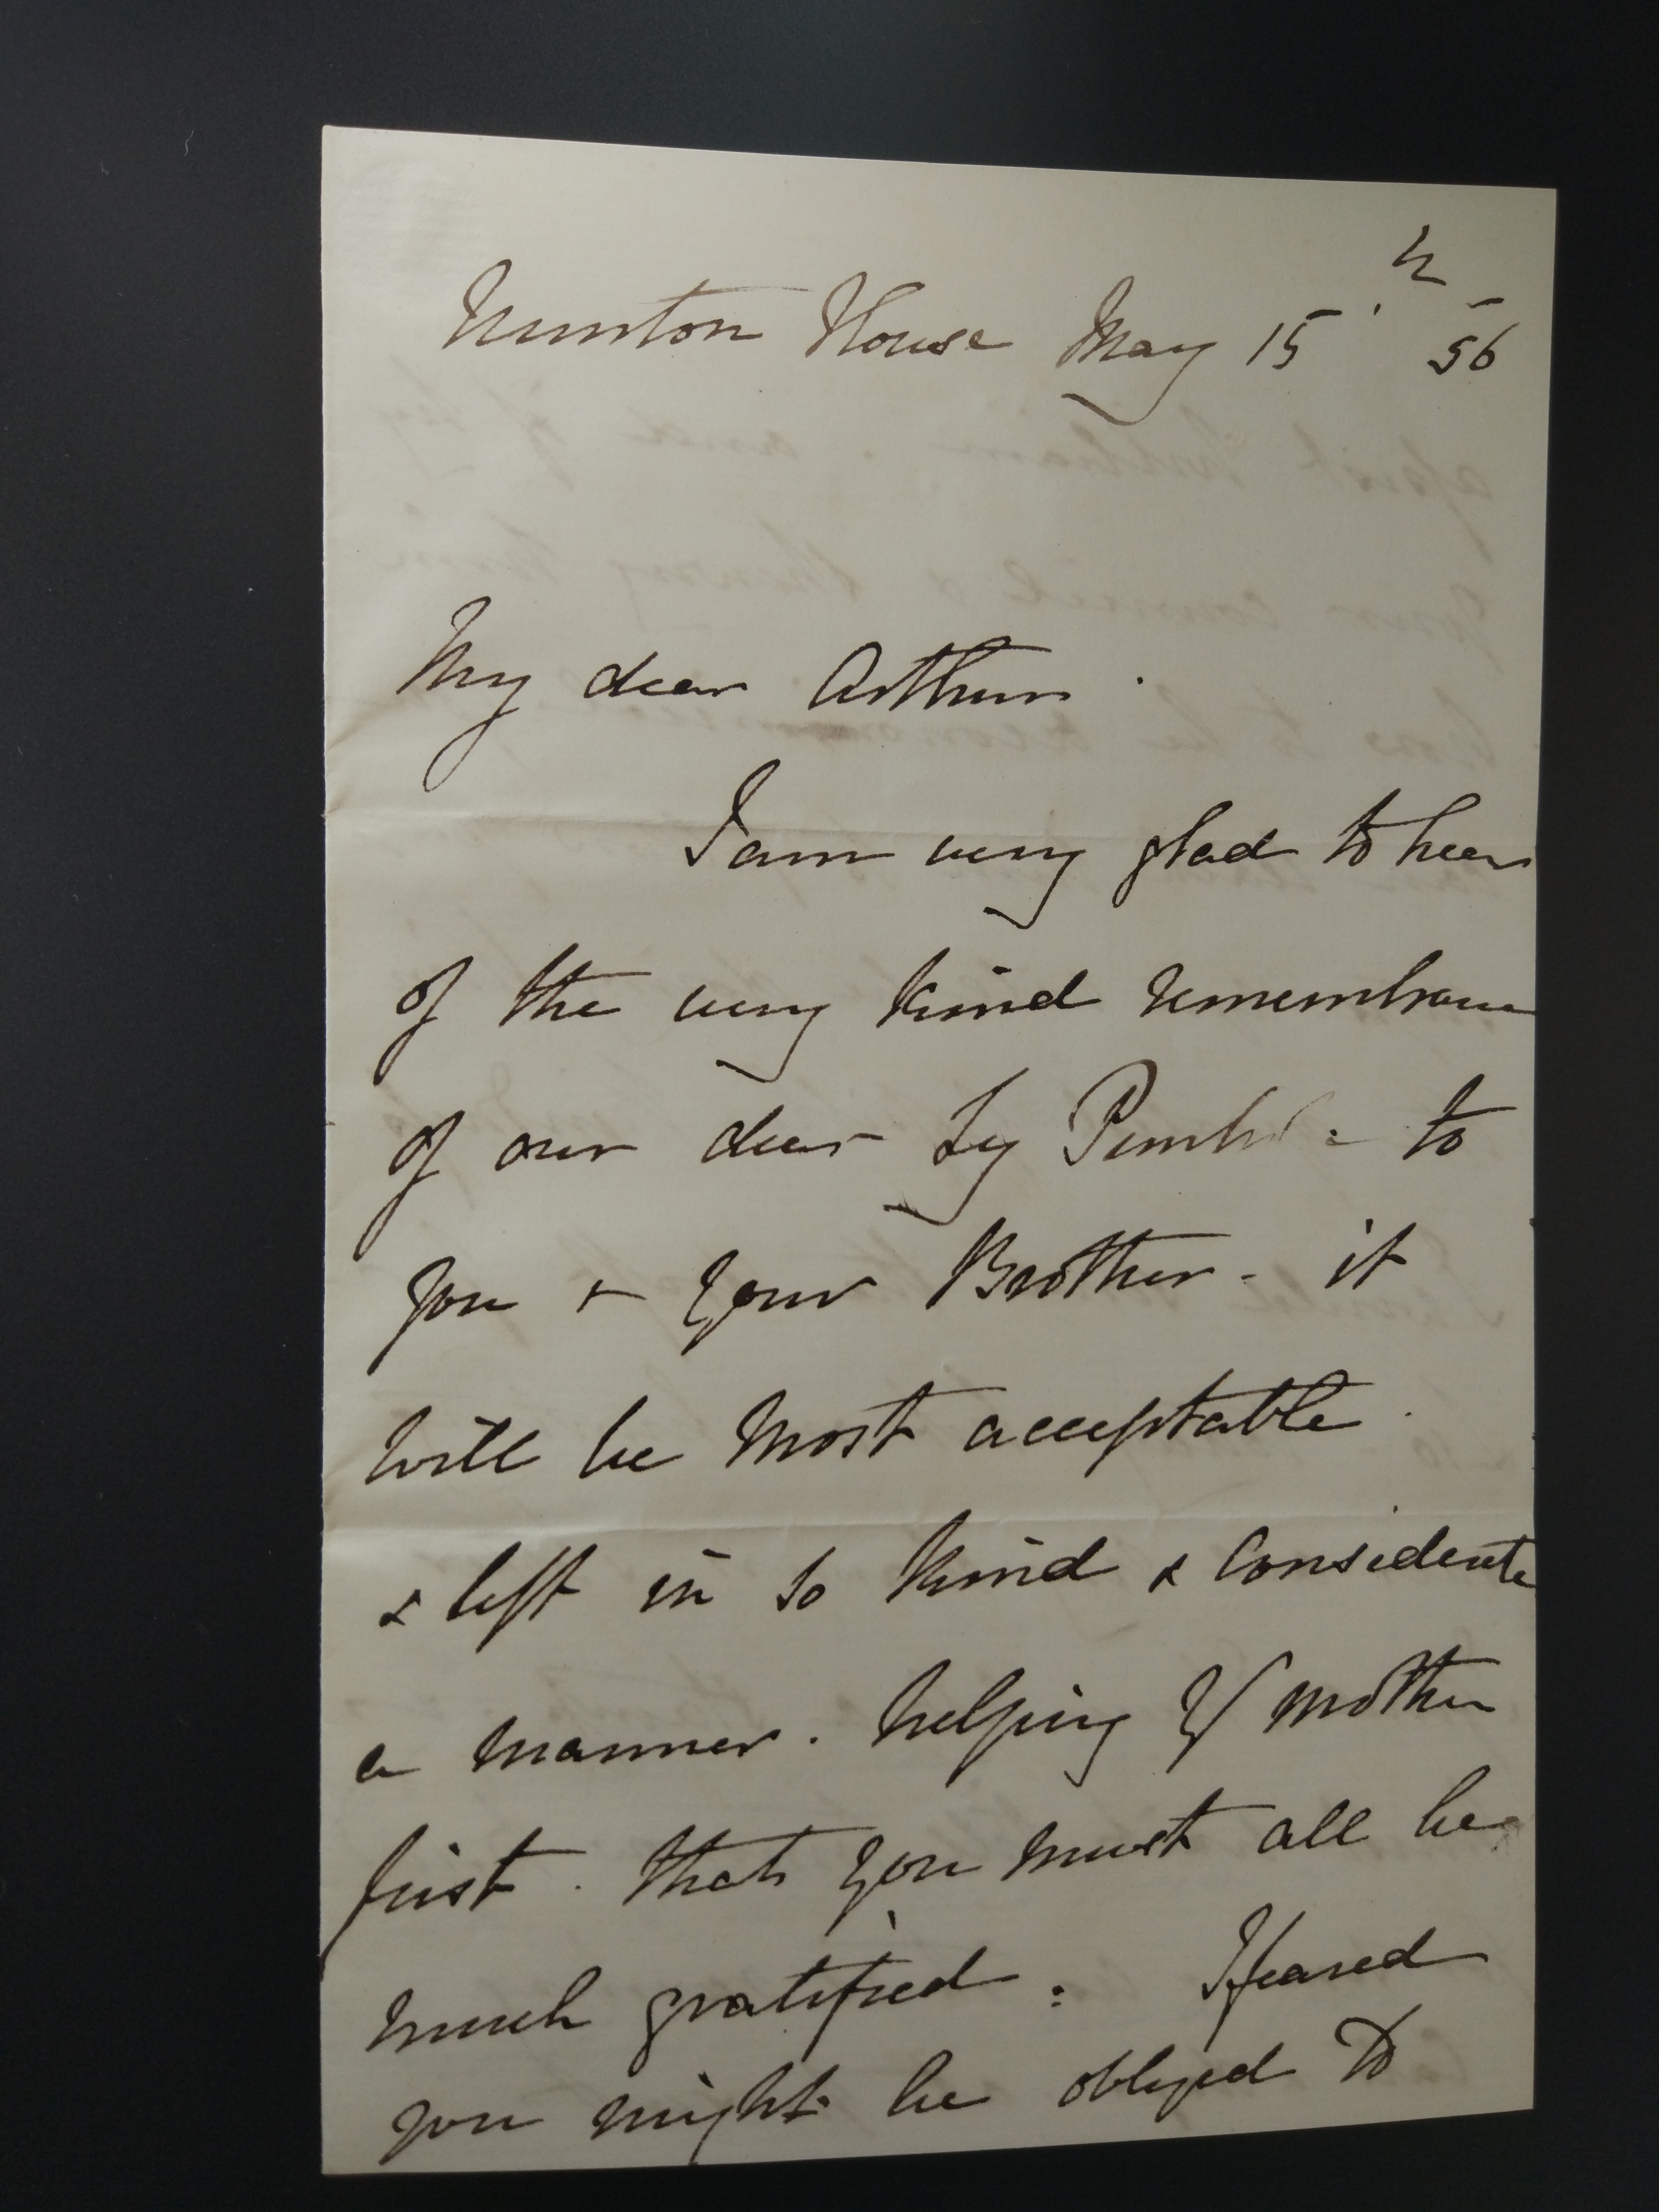 Nunton House May 15th 56
My dear Arthur.
I am very glad to hear
of the very kind remembrance
of our dear Ly to
you & your Brother - it
will be most acceptable.
& left in so kind & considerate
a manner. helping yr mother
first. that you must all be
much gratified: I feared
you might be obliged to